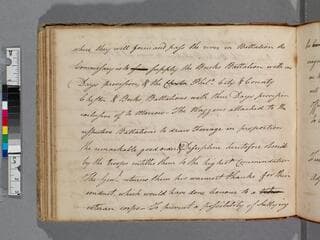 where they will form and pass the river in Battalion the
Commissary is to supply the Bucks Battalion with one
Days provision, & the Phila. City & County
Chester & Bucks Battalions with three Days provision
exclusive of to Morrow. The Waggons attached to the
respective Battalions to draw Forrage in proportion.
the remarkable good order & Discipline heretofore observ'd
by the troops intitles them to the highest Commendation
The Genl. returns them his warmest thanks for their
conduct, which would have done honour to a
veteran corps. To prevent a possibility of